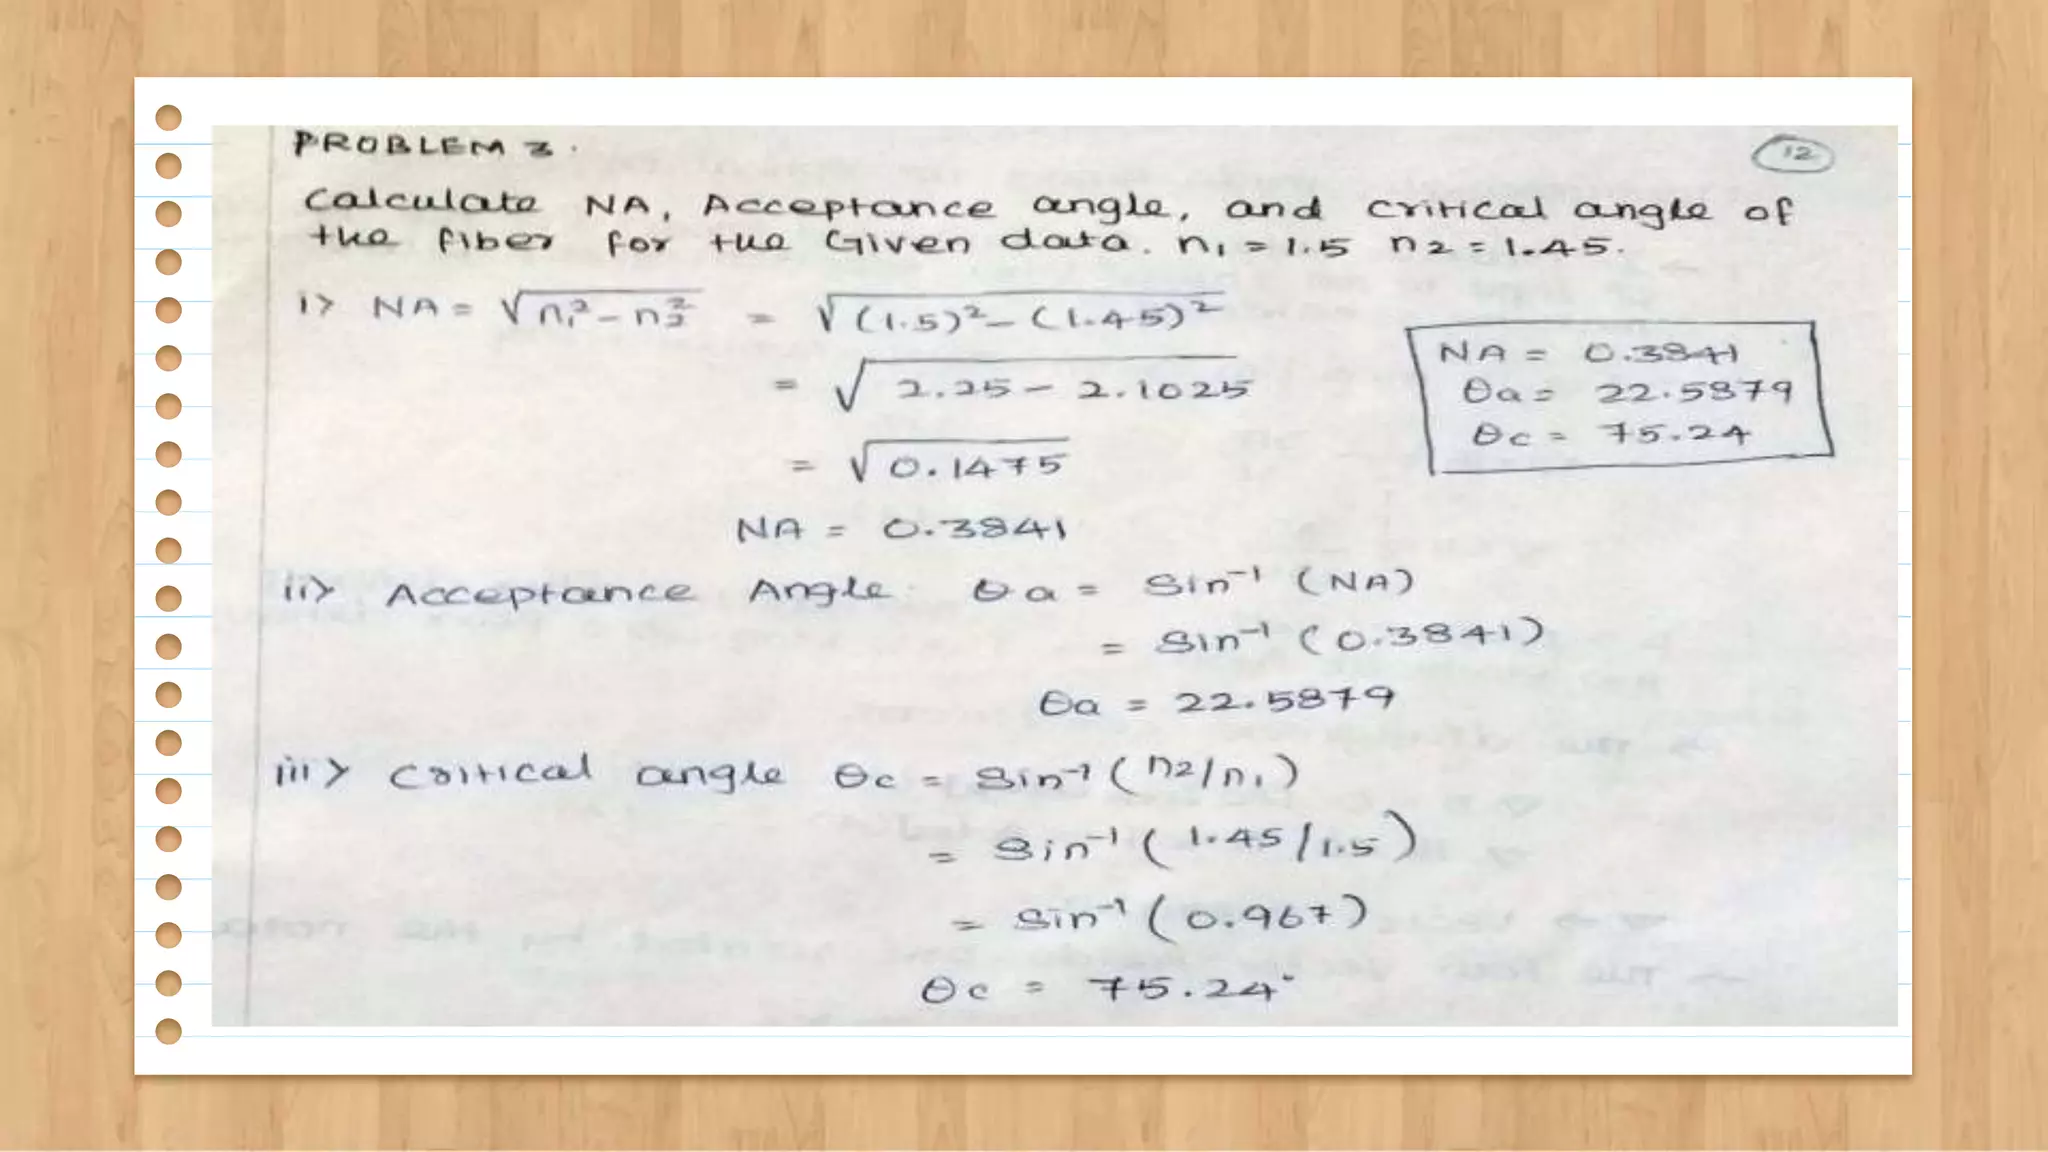 PROBLEM 3.
12
Calculate NA, Acceptance angle, and critical angle of
the fiber for the Given data. n₁ = 1.5 n₂ = 1.45.
i> NA = √n₁² - n₂² = √(1.5)² - (1.45)²
= √2.25 - 2.1025
= √0.1475
NA = 0.3841
NA = 0.3841
θa = 22.5879
θc = 75.24
ii> Acceptance Angle θa = Sin⁻¹ (NA)
= Sin⁻¹ (0.3841)
θa = 22.5879
iii> Critical angle θc = Sin⁻¹ (n₂/n₁)
= Sin⁻¹ (1.45/1.5)
= Sin⁻¹ (0.967)
θc = 75.24°